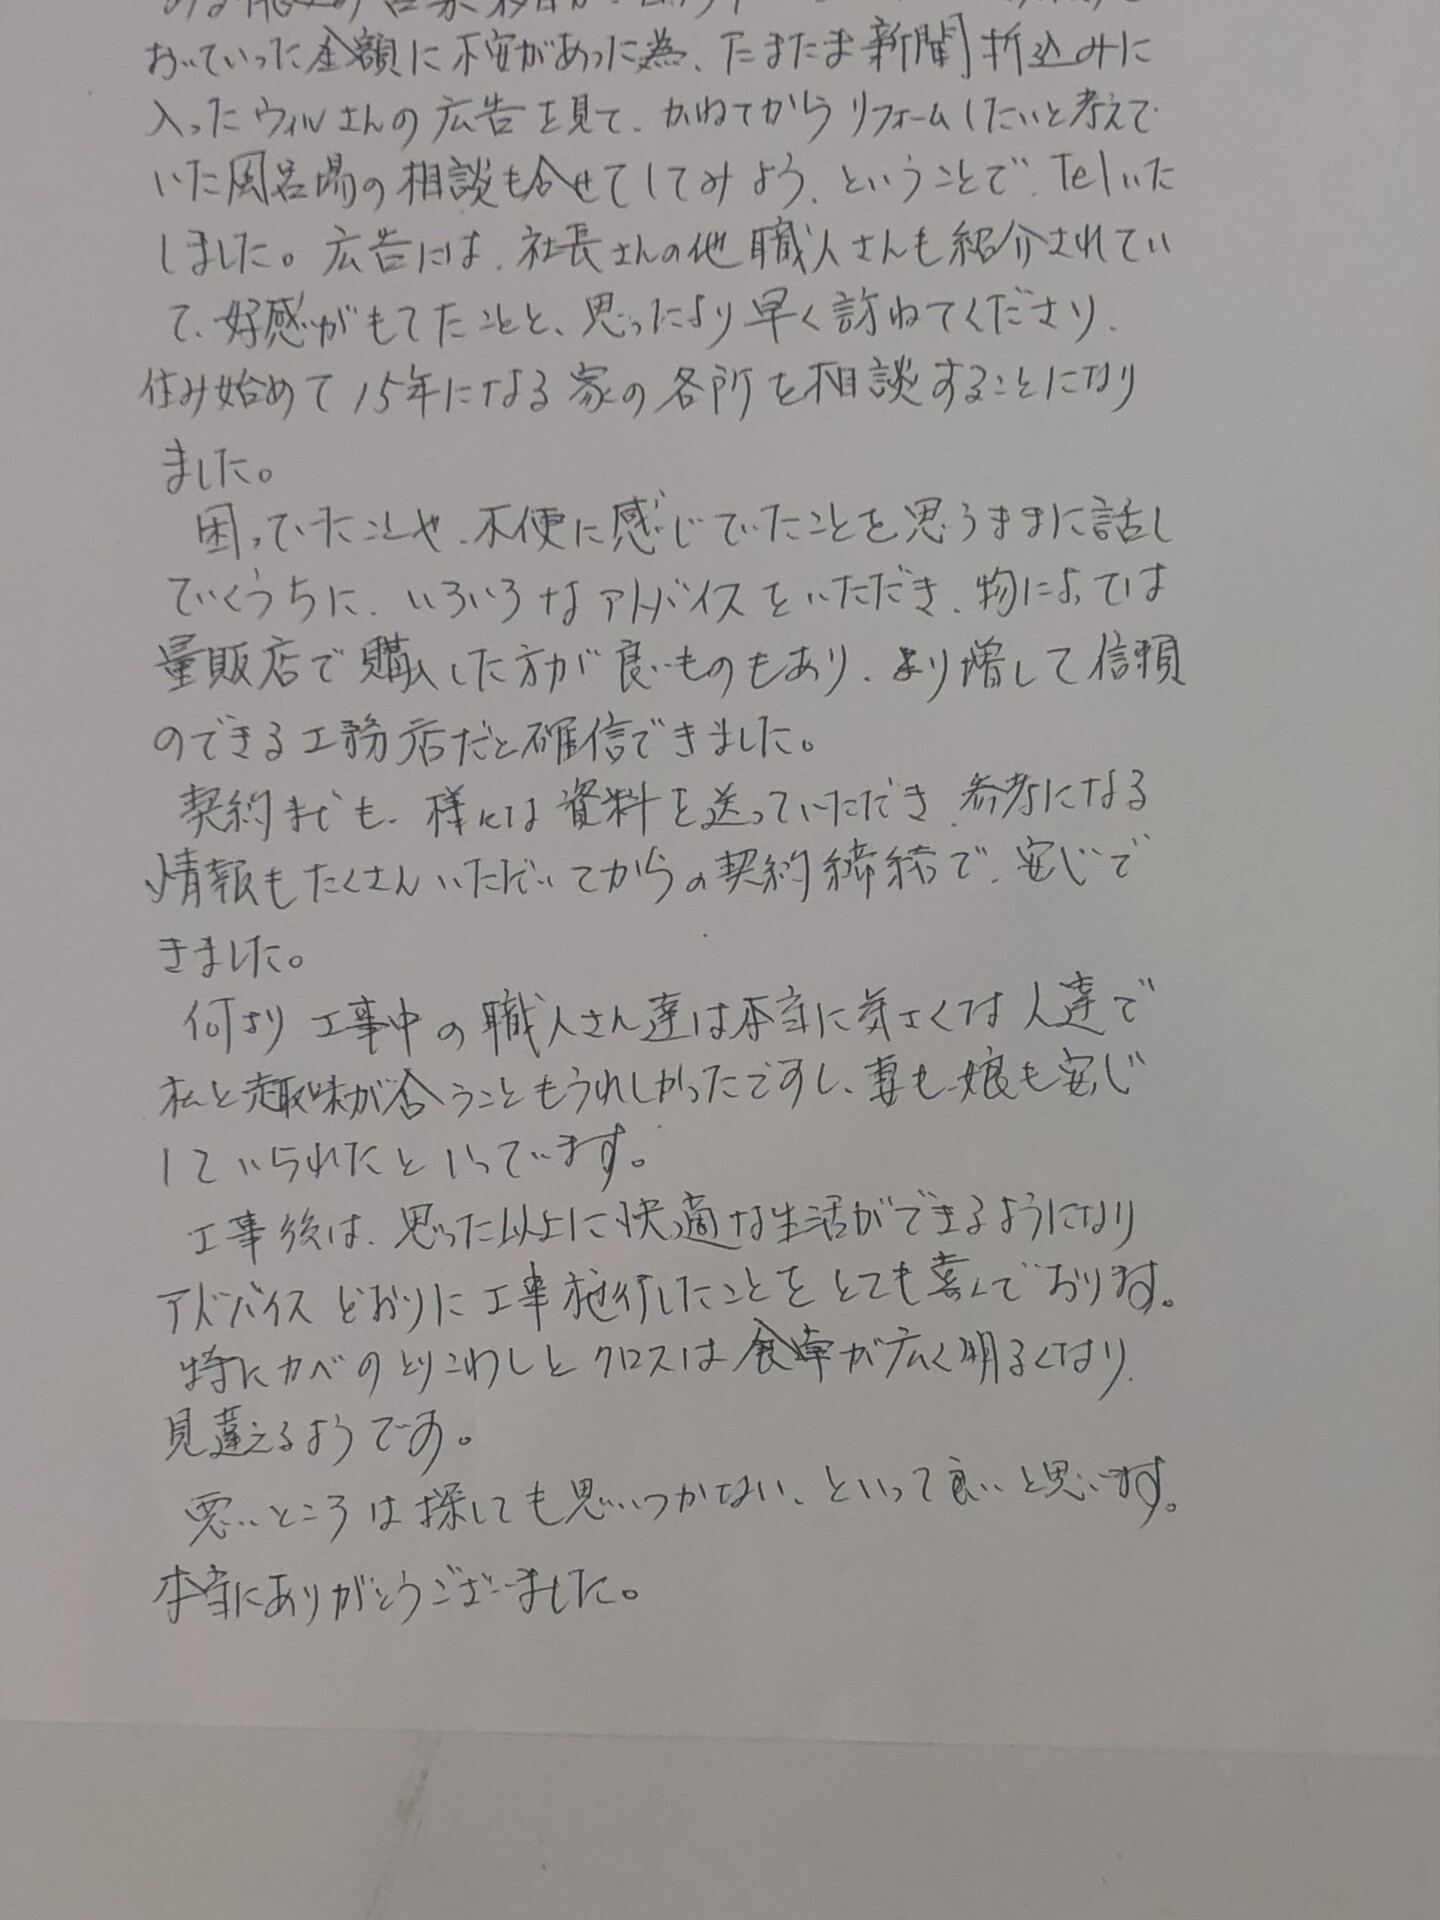 おいていった金額に不安があった為、たまたま新聞折込みに
入ったウィルさんの広告を見て、かねてからリフォームしたいと考えて
いた風呂場の相談も合せてしてみよう、ということで、Telいた
しました。広告には、社長さんの他職人さんも紹介されてい
て、好感がもてたことと、思ったより早く訪ねてくださり、
住み始めて15年になる家の各所を相談することになり
ました。
困っていたことや、不便に感じていたことを思うままに話し
ていくうちに、いろいろなアドバイスをいただき、物によっては
量販店で購入した方が良いものもあり、より増して信頼
のできる工務店だと確信できました。
契約までも、様には資料を送っていただき、参考になる
情報もたくさんいただいてからの契約締結で、安じで
きました。
何より工事中の職人さん達は本当に気さくな人達で
私と趣味が合うこともうれしかったですし、妻も娘も安じ
していられたといっています。
工事後は、思った以上に快適な生活ができるようになり
アドバイスどおりに工事施行したことをとても喜んでおります。
特にカベのとりこわしとクロスは食卓が広く明るくなり、
見違えるようです。
悪いところは探しても思いつかない、といって良いと思います。
本当にありがとうございました。